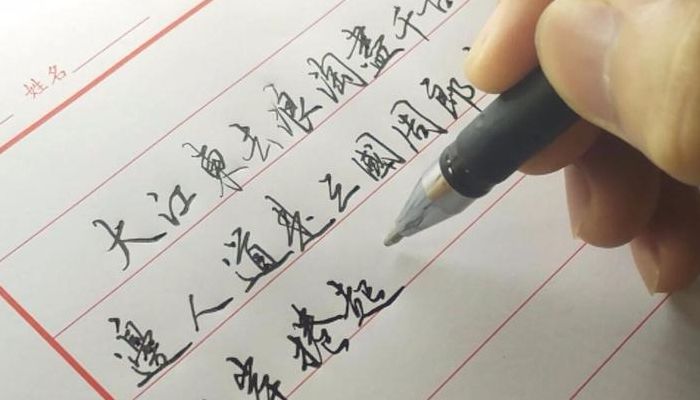 姓名
大江東去浪淘盡千古
邊人道是三國周郎
岸捲起